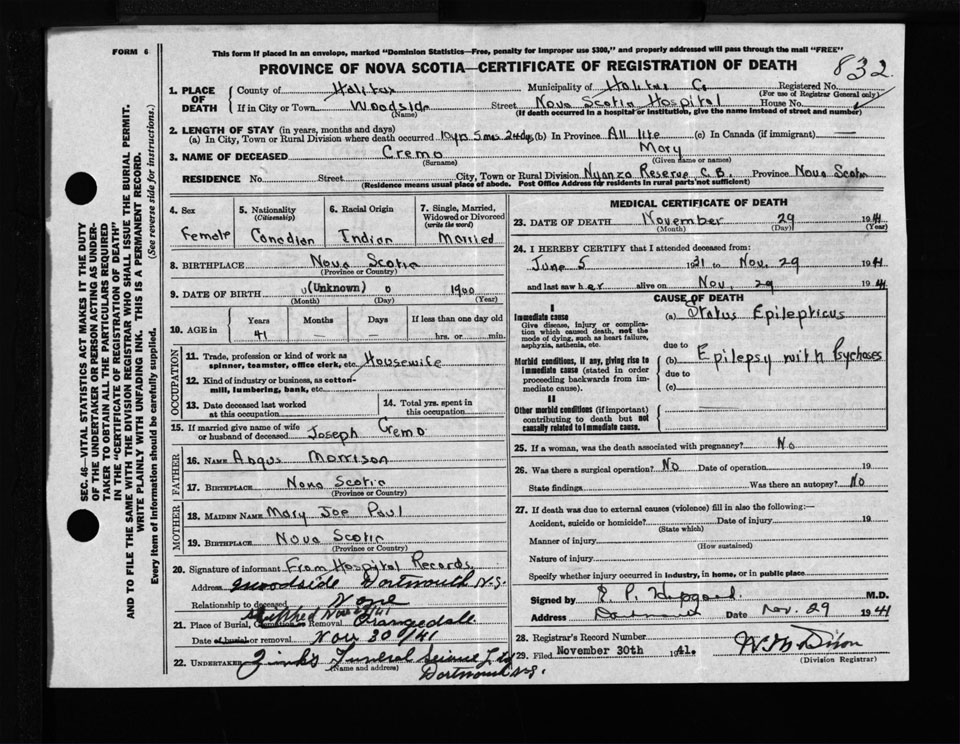 FORM 6
This form if placed in an envelope, marked "Dominion Statistics—Free, penalty for improper use $300," and properly addressed will pass through the mail "FREE"
PROVINCE OF NOVA SCOTIA—CERTIFICATE OF REGISTRATION OF DEATH
832
1. PLACE OF DEATH
County of Halifax Municipality of Halifax Co. Registered No.
(For use of Registrar General only)
If in City or Town Woodside Street Nova Scotia Hospital House No.
(Name) (If death occurred in a hospital or institution, give the name instead of street and number)
2. LENGTH OF STAY (in years, months and days)
(a) In City, Town or Rural Division where death occurred 10yrs 5mos 24dys (b) In Province All life (c) In Canada (if immigrant) —
3. NAME OF DECEASED Cremo Mary
(Surname) (Given name or names)
RESIDENCE No. Street City, Town or Rural Division Nyanza Reserve C.B. Province Nova Scotia
(Residence means usual place of abode. Post Office Address for residents in rural parts not sufficient)
4. Sex Female
5. Nationality (Citizenship) Canadian
6. Racial Origin Indian
7. Single, Married, Widowed or Divorced (write the word) Married
8. BIRTHPLACE Nova Scotia
(Province or Country)
9. DATE OF BIRTH (Unknown) 1900
(Month) (Day) (Year)
10. AGE in Years Months Days If less than one day old
41 — hrs. or min.
OCCUPATION
11. Trade, profession or kind of work as spinner, teamster, office clerk, etc. Housewife
12. Kind of industry or business, as cotton-mill, lumbering, bank, etc.
13. Date deceased last worked at this occupation
14. Total yrs. spent in this occupation
15. If married give name of wife or husband of deceased Joseph Cremo
FATHER
16. NAME Angus Morrison
17. BIRTHPLACE Nova Scotia
(Province or Country)
MOTHER
18. MAIDEN NAME Mary Joe Paul
19. BIRTHPLACE Nova Scotia
(Province or Country)
20. Signature of informant From Hospital Records
Address Woodside Dartmouth N.S.
Relationship to deceased None
21. Place of Burial, Cremation or Removal Shipped Nov 30/41 Orangedale
Date of burial or removal Nov 30/41
22. UNDERTAKER Zink's Funeral Service Ltd
(Name and address) Dartmouth N.S.
MEDICAL CERTIFICATE OF DEATH
23. DATE OF DEATH November 29 1941
(Month) (Day) (Year)
24. I HEREBY CERTIFY that I attended deceased from:
June 5 1931 to Nov. 29 1941
and last saw her alive on Nov. 29 1941
CAUSE OF DEATH
I
Immediate cause (a) Status Epilepticus
Give disease, injury or complication which caused death, not the mode of dying, such as heart failure, asphyxia, asthenia, etc.
due to
Morbid conditions, if any, giving rise to immediate cause (stated in order proceeding backwards from immediate cause).
(b) Epilepsy with Psychoses
due to
(c)
II
Other morbid conditions (if important) contributing to death but not causally related to immediate cause.
25. If a woman, was the death associated with pregnancy? No
26. Was there a surgical operation? No Date of operation 19
State findings Was there an autopsy? No
27. If death was due to external causes (violence) fill in also the following:—
Accident, suicide or homicide? Date of injury 19
(State which)
Manner of injury
(How sustained)
Nature of injury
Specify whether injury occurred in industry, in home, or in public place
Signed by M.D.
Address Date Nov. 29 1941
28. Registrar's Record Number
29. Filed November 30th 1941.
(Division Registrar)
SEC. 46—VITAL STATISTICS ACT MAKES IT THE DUTY
OF THE UNDERTAKER OR PERSON ACTING AS UNDER-
TAKER TO OBTAIN ALL THE PARTICULARS REQUIRED
IN THE "CERTIFICATE OF REGISTRATION OF DEATH"
AND TO FILE THE SAME WITH THE DIVISION REGISTRAR WHO SHALL ISSUE THE BURIAL PERMIT.
WRITE PLAINLY WITH UNFADING INK. THIS IS A PERMANENT RECORD.
Every item of information should be carefully supplied. (See reverse side for instructions.)